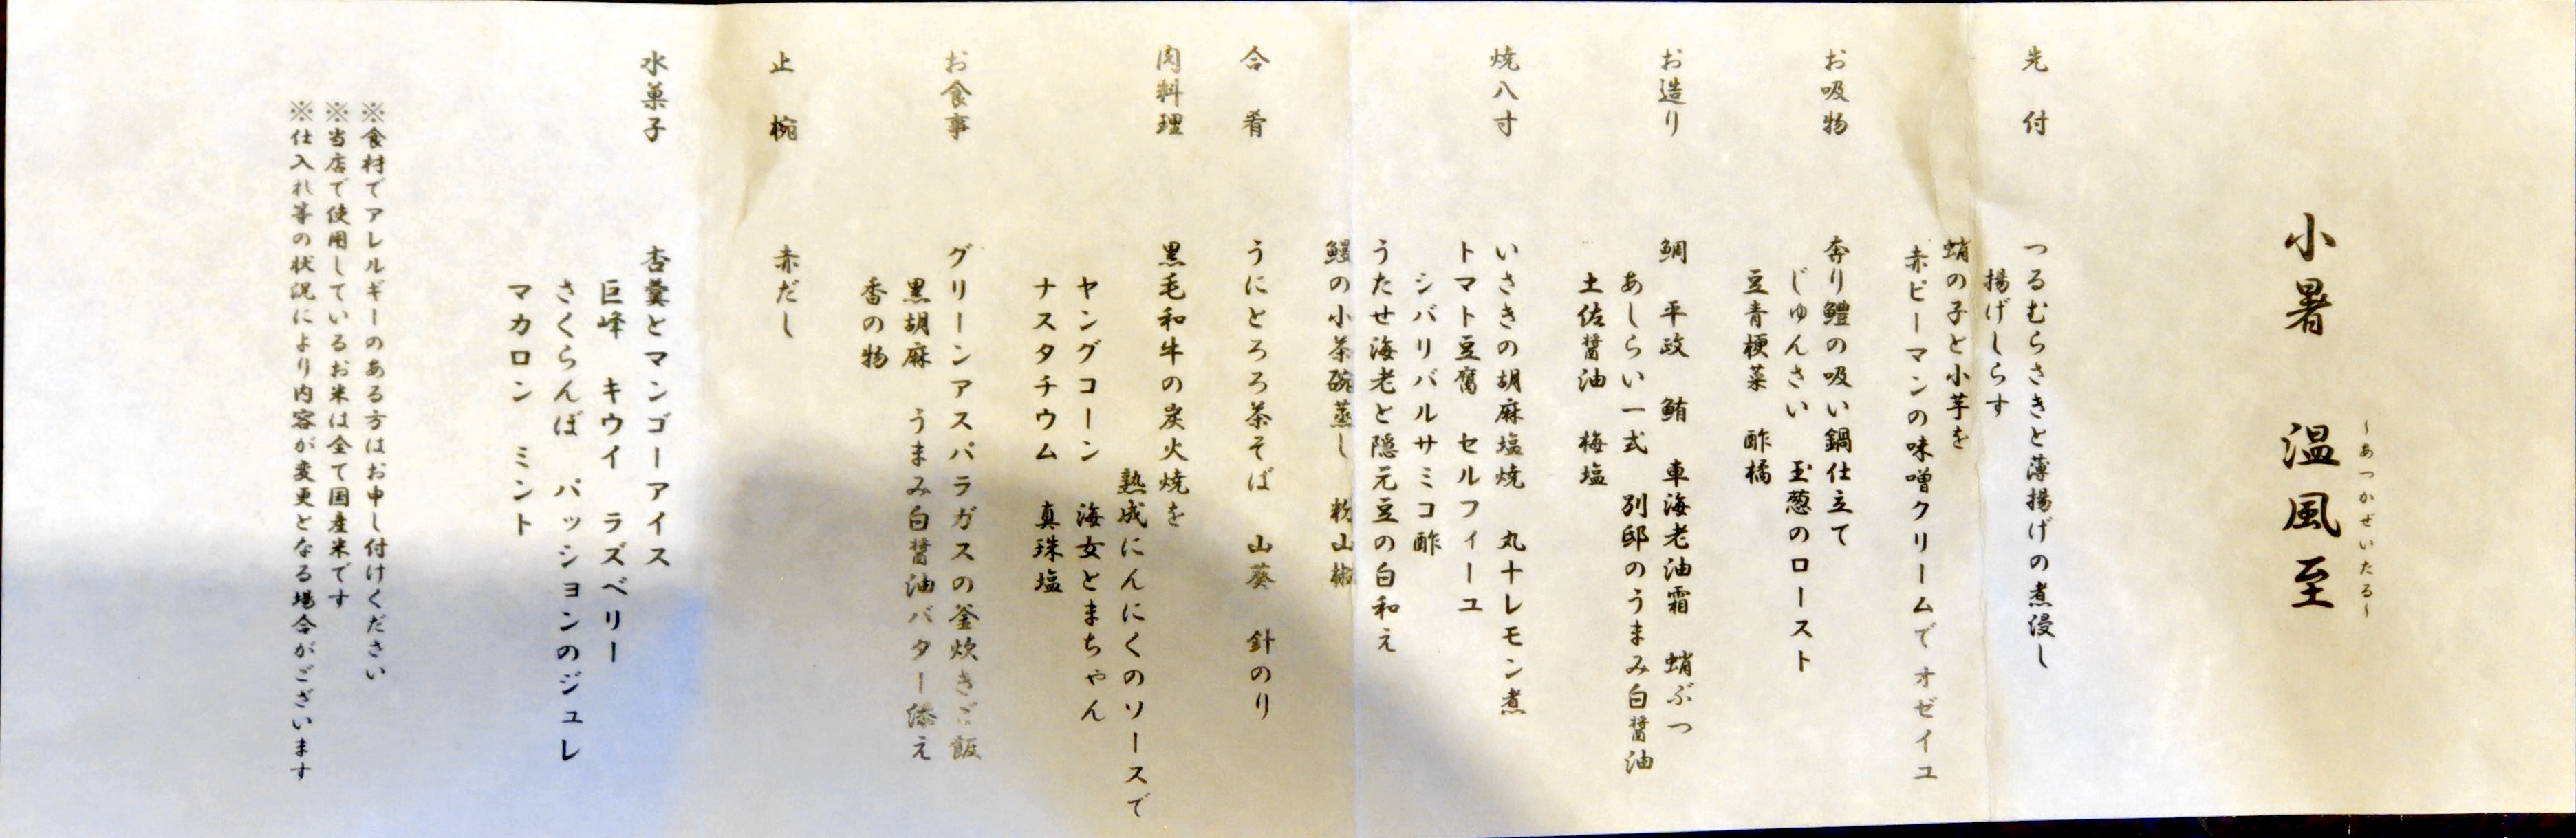 小暑　温風至
～あつかぜいたる～
先　付
つるむらさきと薄揚げの煮浸し
揚げしらす
蛸の子と小芋を
赤ピーマンの味噌クリームで　オゼイユ
お吸物
奔り鱧の吸い鍋仕立て
じゅんさい　玉葱のロースト
豆青梗菜　酢橘
お造り
鯛　平政　鮪　車海老油霜　蛸ぶつ
あしらい一式　別邸のうまみ白醤油
土佐醤油　梅塩
焼八寸
いさきの胡麻塩焼　丸十レモン煮
トマト豆腐　セルフィーユ
シバリバルサミコ酢
うたせ海老と隠元豆の白和え
鰻の小茶碗蒸し　粉山椒
合　肴
うにとろろ茶そば　山葵　針のり
肉料理
黒毛和牛の炭火焼を
熟成にんにくのソースで
ヤングコーン　海女とまちゃん
ナスタチウム　真珠塩
お食事
グリーンアスパラガスの釜炊きご飯
黒胡麻　うまみ白醤油バター添え
香の物
止　椀
赤だし
水菓子
杏羹とマンゴーアイス
巨峰　キウイ　ラズベリー
さくらんぼ　パッションのジュレ
マカロン　ミント
※食材でアレルギーのある方はお申し付けください
※当店で使用しているお米は全て国産米です
※仕入れ等の状況により内容が変更となる場合がございます